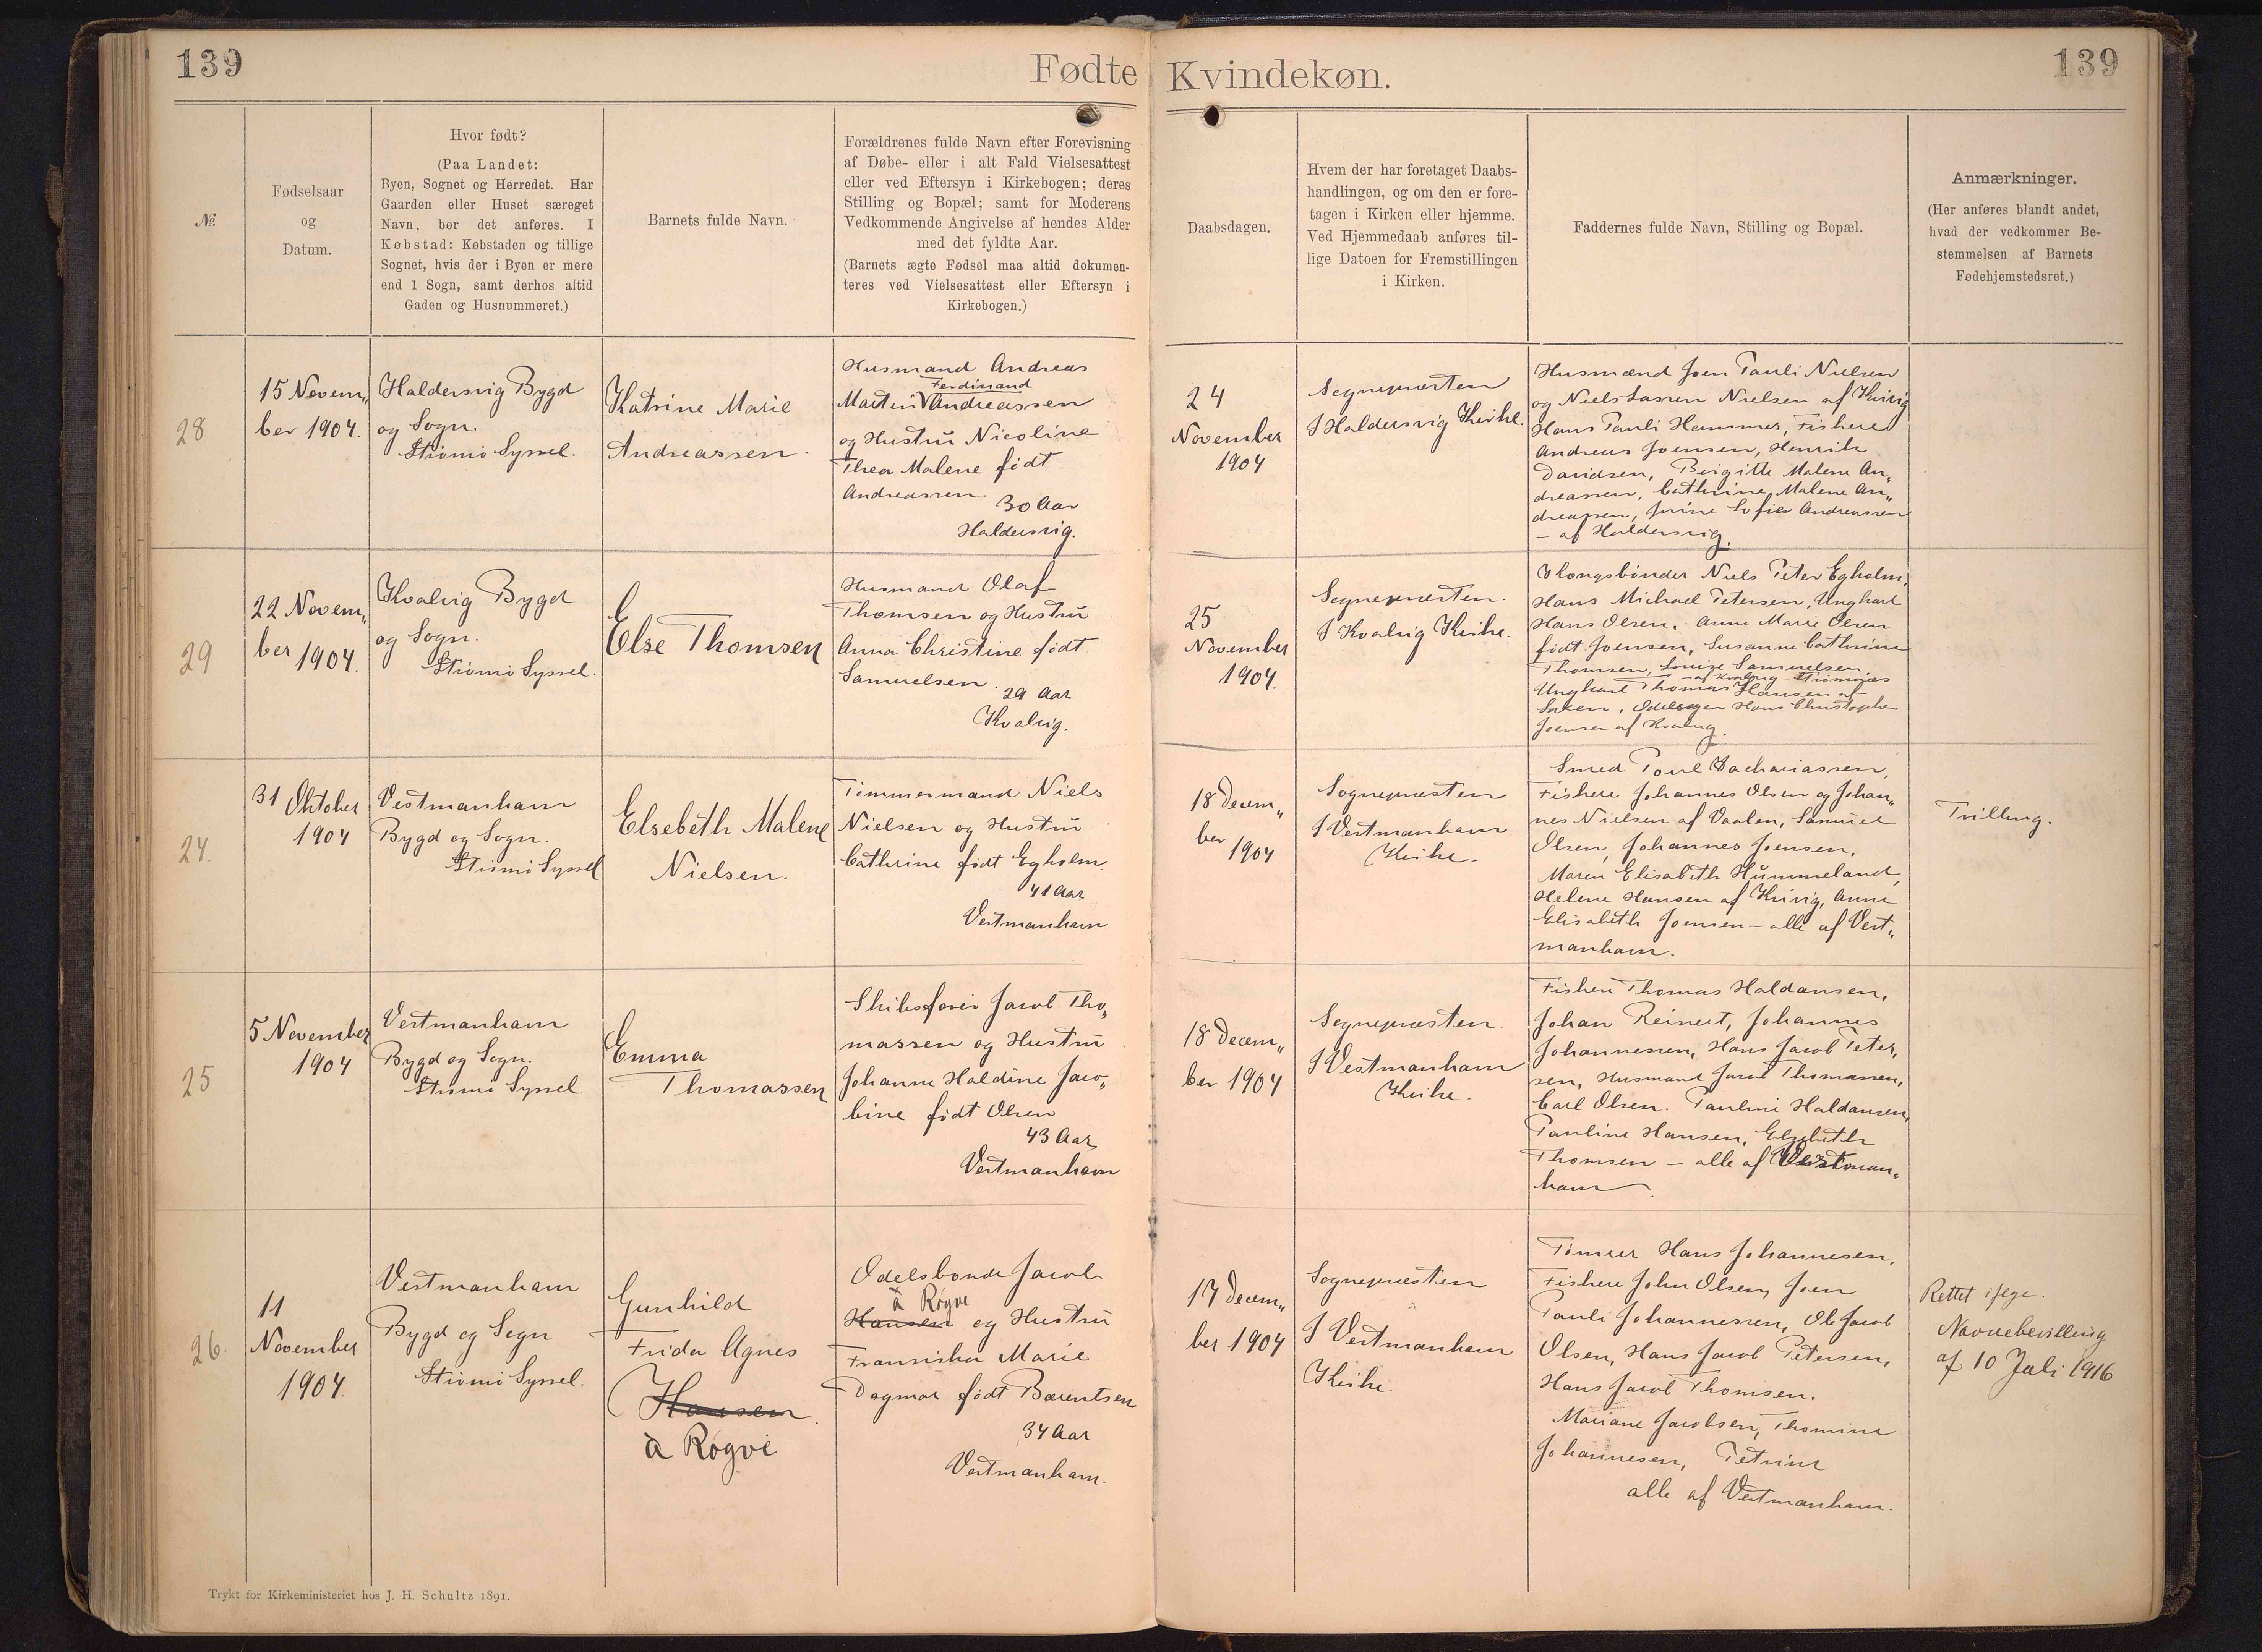 139
Fødte Kvindekøn.
139
№
Fødselsaar
og
Datum.
Hvor født?
(Paa Landet:
Byen, Sognet og Herredet. Har
Gaarden eller Huset særeget
Navn, bør det anføres. I
Købstad: Købstaden og tillige
Sognet, hvis der i Byen er mere
end 1 Sogn, samt derhos altid
Gaden og Husnummeret.)
Barnets fulde Navn.
Forældrenes fulde Navn efter Forevisning
af Døbe- eller i alt Fald Vielsesattest
eller ved Eftersyn i Kirkebogen; deres
Stilling og Bopæl; samt for Moderens
Vedkommende Angivelse af hendes Alder
med det fyldte Aar.
(Barnets ægte Fødsel maa altid dokumen-
teres ved Vielsesattest eller Eftersyn i
Kirkebogen.)
Daabsdagen.
Hvem der har foretaget Daabs-
handlingen, og om den er fore-
tagen i Kirken eller hjemme.
Ved Hjemmedaab anføres til-
lige Datoen for Fremstillingen
i Kirken.
Faddernes fulde Navn, Stilling og Bopæl.
Anmærkninger.
(Her anføres blandt andet,
hvad der vedkommer Be-
stemmelsen af Barnets
Fødehjemstedsret.)
28
15 Novem„
ber 1904.
Haldersvig Bygd
og Sogn.
Strømø Syssel.
Katrine Marie
Andreassen.
Husmand Andreas
Ferdinand
Martin Andreassen
og Hustru Nicoline
Thea Malene født
Andreassen
30 Aar
Haldersvig.
24
November
1904
Sognepræsten
I Haldersvig Kirke.
Husmænd Joen Pauli Nielsen
og Niels Lassen Nielsen af Kvivig
Hans Pauli Hammer, Fiskere
Andreas Joensen, Henrik
Davidsen, Birgitte Malene An„
dreassen, Cathrine Malene An„
dreassen, Sofie Andreassen
– af Haldersvig.
29
22 Novem„
ber 1904.
Kvalvig Bygd
og Sogn.
Strømø Syssel.
Else Thomsen
Husmand Olaf
Thomsen og Hustru
Anna Christine født
Samuelsen
29 Aar
Kvalvig.
25
November
1904.
Sognepræsten.
I Kvalvig Kirke.
Kongsbønder Niels Peter Egholm,
Hans Michael Petersen, Ungkarl
Hans Olsen, Anne Marie Olsen
født Joensen, Susanne Cathrine
Thomsen, Louise Samuelsen
– af Kvalvig
Ungkarl Thomas Hansen af
Odelsejer Hans Christopher
Joensen af Kvalvig.
24.
31 Oktober
1904
Vestmanhavn
Bygd og Sogn.
Strømø Syssel
Elsebeth Malene
Nielsen.
Tømmermand Niels
Nielsen og Hustru
Cathrine født Egholm
41 Aar
Vestmanhavn
18 Decem„
ber 1904
Sognepræsten
I Vestmanhavn
Kirke.
Smed Poul Zachariassen,
Fiskere Johannes Olsen og Johan„
nes Nielsen af Vaalen, Samuel
Olsen, Johannes Joensen,
Maren Elisabeth Hummeland,
Helene Hansen af Kvivig, Anne
Elisabeth Joensen – alle af Vest„
manhavn.
Trilling.
25
5 November
1904
Vestmanhavn
Bygd og Sogn.
Strømø Syssel
Emma
Thomassen
Skibsfører Jacob Tho„
massen og Hustru
Johanne Haldine Jaco„
bine født Olsen
43 Aar
Vestmanhavn
18 Decem„
ber 1904
Sognepræsten.
I Vestmanhavn
Kirke.
Fiskere Thomas Haldansen,
Johan Reinert, Johannes
Johannesen, Hans Jacob Peter„
sen, Husmand Jacob Thomassen,
Carl Olsen. Pauline Haldansen,
Pauline Hansen, Elsebeth
Thomsen – alle af Vestman„
havn.
26.
11
November
1904.
Vestmanhavn
Bygd og Sogn
Strømø Syssel.
Gunhild
Frida Agnes
Hansen.
à Røgvi
Odelsbonde Jacob
à Røgve
Hansen og Hustru
Fransiska Marie
Dagmar født Bærentsen
34 Aar
Vestmanhavn.
17 Decem„
ber 1904
Sognepræsten
I Vestmanhavn
Kirke.
Tømrer Hans Johannesen,
Fiskere John Olsen, Joen
Pauli Johannesen, Ole Jacob
Olsen, Hans Jacob Petersen,
Hans Jacob Thomsen.
Mariane Jacobsen, Thomine
Johannesen, Petrine
alle af Vestmanhavn.
Rettet ifølge
Navnebevilling
af 10 Juli 1916
Trykt for Kirkeministeriet hos J. H. Schultz 1891.